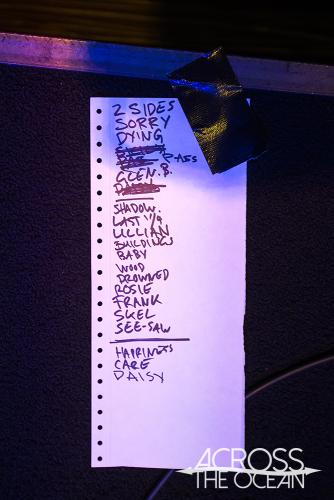 2 SIDES
SORRY
DYING
GLEN.B.
SHADOW.
LAST
LILLIAN
BUILDINGS
BABY
WOOD
DROWNED
ROSIE
FRANK
SKEL
SEE-SAW
HAPPINESS
CARE
DAISY
ACROSS
THE OCEAN